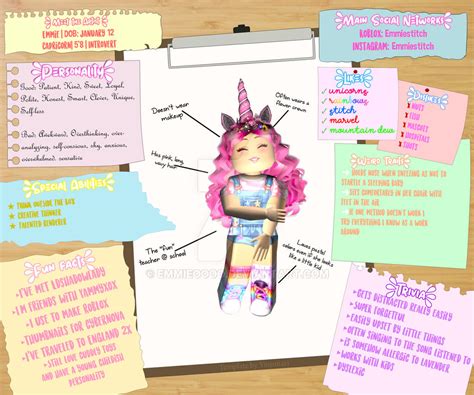 Meet the Artist
Emmie | DOB: January 12
Capricorn | 5'8 | Introvert
Main Social Networks
Roblox: Emmiestitch
Instagram: Emmiestitch
Personality
Good: Patient, Kind, Sweet, Loyal,
Polite, Honest, Smart, Clever, Unique,
Selfless
Bad: Overthinking, over-
analyzing, self-conscious, shy, anxious,
overwhelmed, sensitive
Doesn't wear
makeup
Often wears a
flower crown
Has pink, long,
very hair
The "fun"
teacher @ school
Loves pastel
colors even if she's
not a little kid
Likes
unicorns
rainbows
stitch
marvel
mountain dew
Dislikes
Hospitals
Special Abilities
Think outside the box
Creative thinker
Talented renderer
Weird Traits
Holds nose when sneezing as not to
startle a sleeping bird
Sits comfortably in her chair with
feet in the air
If one method doesn't work I
try everything I know as a work
around
Fun Facts
I've met
I'm friends with
I use to make Roblox
thumbnails for Cybernova
I've traveled to England 2x
Still love goofy toys
and have a young childish
personality
Trivia
Gets distracted really easily
Super forgetful
Easily upset by little things
Often singing to the song listened to
Is somehow allergic to lavender
Works with kids
Dyslexic